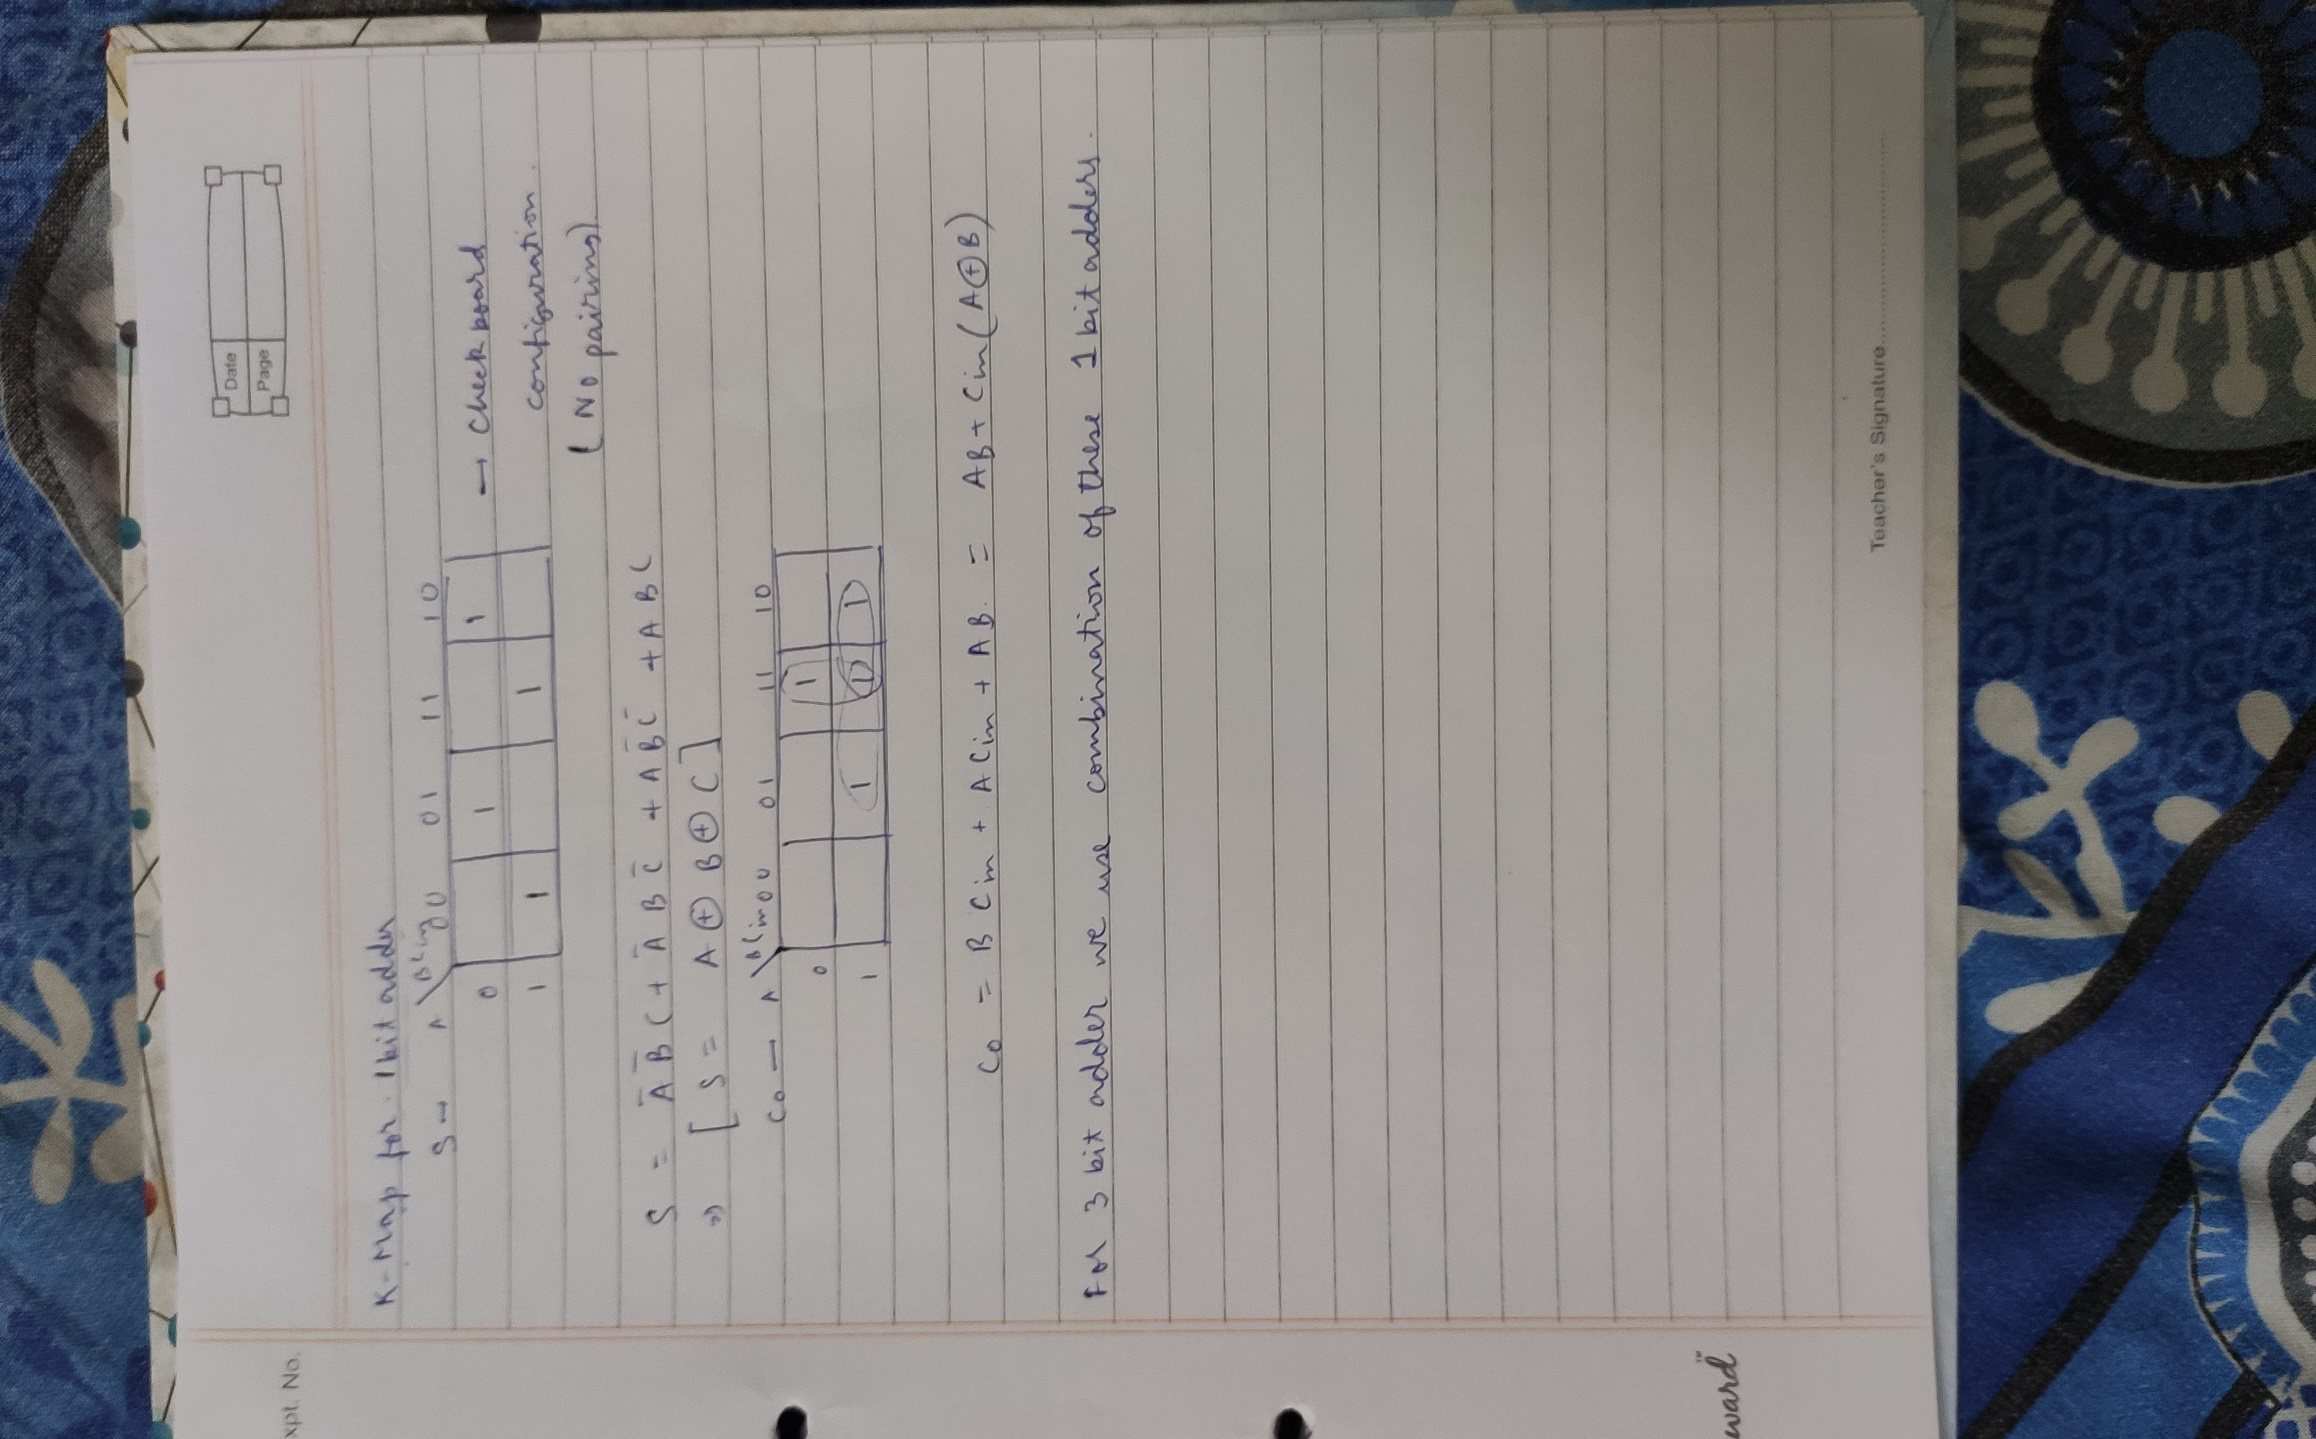 Expt. No.
Date
Page
K-Map for 1 bit adder
S → A \ BCin 00 01 11 10
0 1 1 → Check board
1 1 1 configuration.
(No pairing)
S = A̅ B̅ C + A̅ B C̅ + A B̅ C̅ + A B C
⇒ [S = A ⊕ B ⊕ C]
Co — A \ BCin 00 01 11 10
0 1
1 1 1 1
Co = B Cin + A Cin + AB. = AB + Cin (A ⊕ B)
For 3 bit adder we use combination of these 1 bit adders.
Teacher's Signature